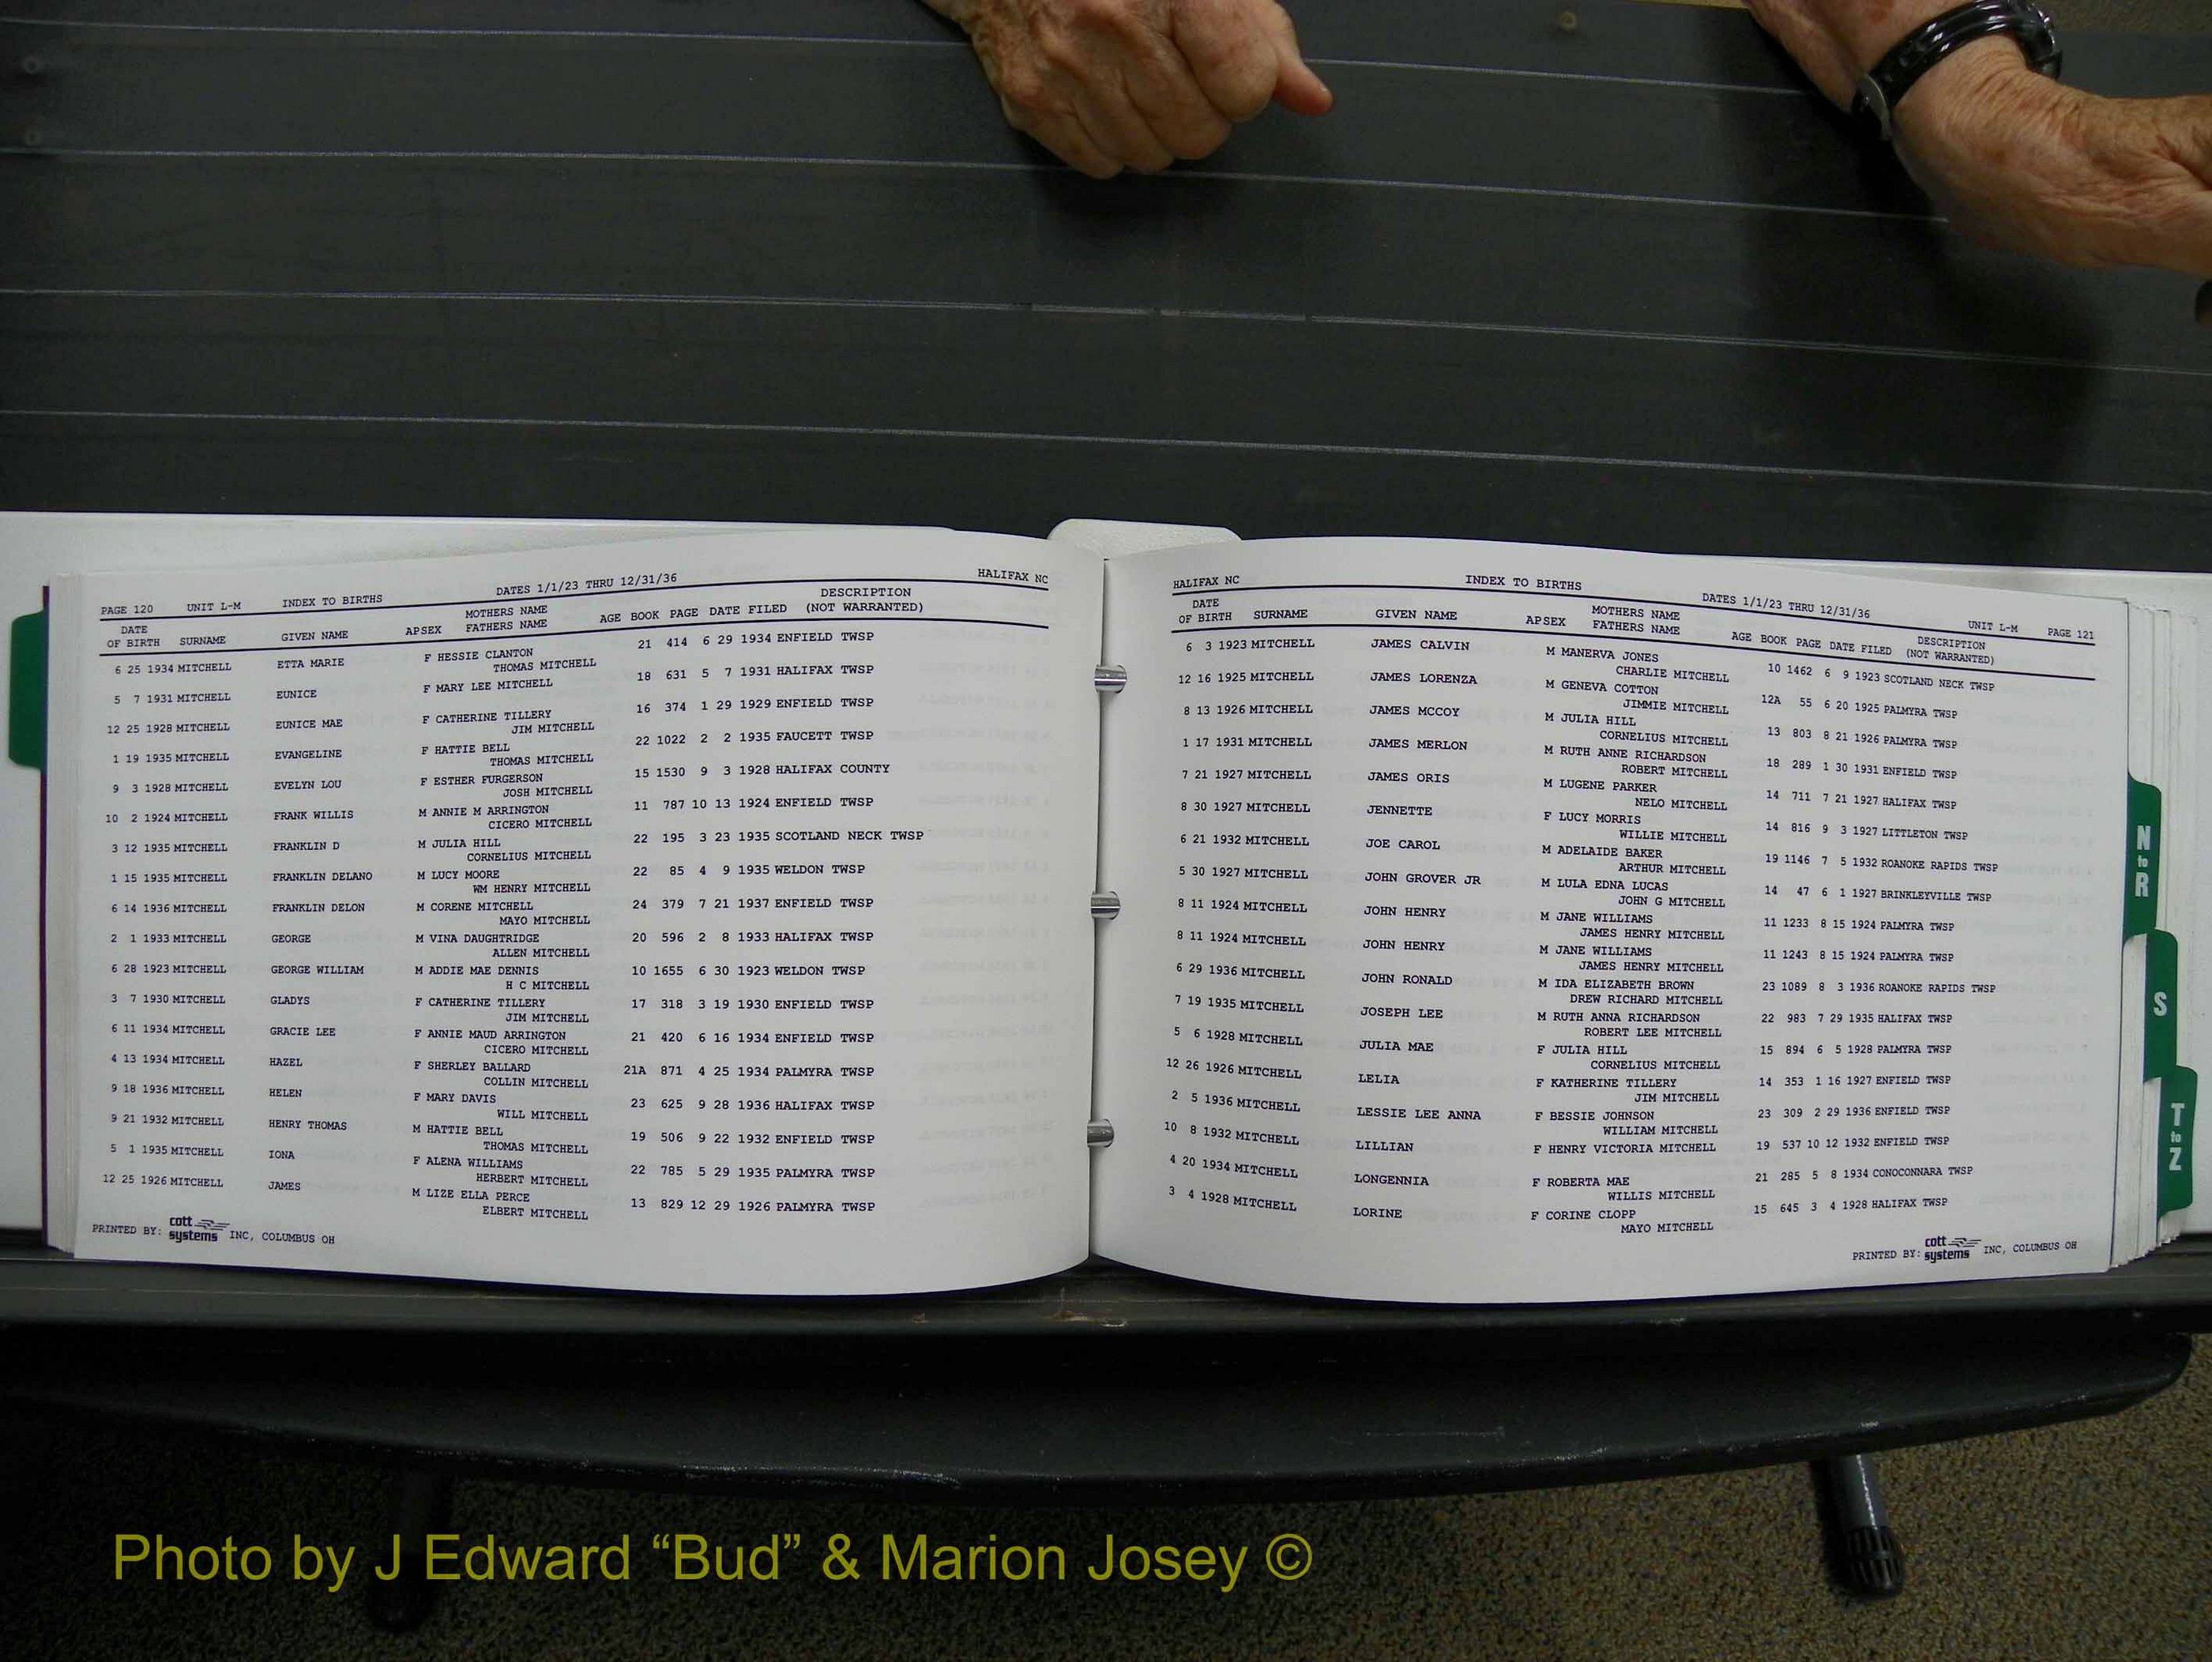 PAGE 120 UNIT L-M INDEX TO BIRTHS DATES 1/1/23 THRU 12/31/36 HALIFAX NC
DATE OF BIRTH SURNAME GIVEN NAME APSEX MOTHERS NAME FATHERS NAME AGE BOOK PAGE DATE FILED DESCRIPTION (NOT WARRANTED)
6 25 1934 MITCHELL ETTA MARIE F HESSIE CLANTON 21 414 6 29 1934 ENFIELD TWSP
THOMAS MITCHELL
5 7 1931 MITCHELL EUNICE F MARY LEE MITCHELL 18 631 5 7 1931 HALIFAX TWSP
12 25 1928 MITCHELL EUNICE MAE F CATHERINE TILLERY 16 374 1 29 1929 ENFIELD TWSP
JIM MITCHELL
1 19 1935 MITCHELL EVANGELINE F HATTIE BELL 22 1022 2 2 1935 FAUCETT TWSP
THOMAS MITCHELL
9 3 1928 MITCHELL EVELYN LOU F ESTHER FURGERSON 15 1530 9 3 1928 HALIFAX COUNTY
JOSH MITCHELL
10 2 1924 MITCHELL FRANK WILLIS M ANNIE M ARRINGTON 11 787 10 13 1924 ENFIELD TWSP
CICERO MITCHELL
3 12 1935 MITCHELL FRANKLIN D M JULIA HILL 22 195 3 23 1935 SCOTLAND NECK TWSP
CORNELIUS MITCHELL
1 15 1935 MITCHELL FRANKLIN DELANO M LUCY MOORE 22 85 4 9 1935 WELDON TWSP
WM HENRY MITCHELL
6 14 1936 MITCHELL FRANKLIN DELON M CORENE MITCHELL 24 379 7 21 1937 ENFIELD TWSP
MAYO MITCHELL
2 1 1933 MITCHELL GEORGE M VINA DAUGHTRIDGE 20 596 2 8 1933 HALIFAX TWSP
ALLEN MITCHELL
6 28 1923 MITCHELL GEORGE WILLIAM M ADDIE MAE DENNIS 10 1655 6 30 1923 WELDON TWSP
H C MITCHELL
3 7 1930 MITCHELL GLADYS F CATHERINE TILLERY 17 318 3 19 1930 ENFIELD TWSP
JIM MITCHELL
6 11 1934 MITCHELL GRACIE LEE F ANNIE MAUD ARRINGTON 21 420 6 16 1934 ENFIELD TWSP
CICERO MITCHELL
4 13 1934 MITCHELL HAZEL F SHERLEY BALLARD 21A 871 4 25 1934 PALMYRA TWSP
COLLIN MITCHELL
9 18 1936 MITCHELL HELEN F MARY DAVIS 23 625 9 28 1936 HALIFAX TWSP
WILL MITCHELL
9 21 1932 MITCHELL HENRY THOMAS M HATTIE BELL 19 506 9 22 1932 ENFIELD TWSP
THOMAS MITCHELL
5 1 1935 MITCHELL IONA F ALENA WILLIAMS 22 785 5 29 1935 PALMYRA TWSP
HERBERT MITCHELL
12 25 1926 MITCHELL JAMES M LIZE ELLA PERCE 13 829 12 29 1926 PALMYRA TWSP
ELBERT MITCHELL
PRINTED BY: cott systems INC, COLUMBUS OH
HALIFAX NC INDEX TO BIRTHS DATES 1/1/23 THRU 12/31/36 UNIT L-M PAGE 121
DATE OF BIRTH SURNAME GIVEN NAME APSEX MOTHERS NAME FATHERS NAME AGE BOOK PAGE DATE FILED DESCRIPTION (NOT WARRANTED)
6 3 1923 MITCHELL JAMES CALVIN M MANERVA JONES 10 1462 6 9 1923 SCOTLAND NECK TWSP
CHARLIE MITCHELL
12 16 1925 MITCHELL JAMES LORENZA M GENEVA COTTON 12A 55 6 20 1925 PALMYRA TWSP
JIMMIE MITCHELL
8 13 1926 MITCHELL JAMES MCCOY M JULIA HILL 13 803 8 21 1926 PALMYRA TWSP
CORNELIUS MITCHELL
1 17 1931 MITCHELL JAMES MERLON M RUTH ANNE RICHARDSON 18 289 1 30 1931 ENFIELD TWSP
ROBERT MITCHELL
7 21 1927 MITCHELL JAMES ORIS M LUGENE PARKER 14 711 7 21 1927 HALIFAX TWSP
NELO MITCHELL
8 30 1927 MITCHELL JENNETTE F LUCY MORRIS 14 816 9 3 1927 LITTLETON TWSP
WILLIE MITCHELL
6 21 1932 MITCHELL JOE CAROL M ADELAIDE BAKER 19 1146 7 5 1932 ROANOKE RAPIDS TWSP
ARTHUR MITCHELL
5 30 1927 MITCHELL JOHN GROVER JR M LULA EDNA LUCAS 14 47 6 1 1927 BRINKLEYVILLE TWSP
JOHN G MITCHELL
8 11 1924 MITCHELL JOHN HENRY M JANE WILLIAMS 11 1233 8 15 1924 PALMYRA TWSP
JAMES HENRY MITCHELL
8 11 1924 MITCHELL JOHN HENRY M JANE WILLIAMS 11 1243 8 15 1924 PALMYRA TWSP
JAMES HENRY MITCHELL
6 29 1936 MITCHELL JOHN RONALD M IDA ELIZABETH BROWN 23 1089 8 3 1936 ROANOKE RAPIDS TWSP
DREW RICHARD MITCHELL
7 19 1935 MITCHELL JOSEPH LEE M RUTH ANNA RICHARDSON 22 983 7 29 1935 HALIFAX TWSP
ROBERT LEE MITCHELL
5 6 1928 MITCHELL JULIA MAE F JULIA HILL 15 894 6 5 1928 PALMYRA TWSP
CORNELIUS MITCHELL
12 26 1926 MITCHELL LELIA F KATHERINE TILLERY 14 353 1 16 1927 ENFIELD TWSP
JIM MITCHELL
2 5 1936 MITCHELL LESSIE LEE ANNA F BESSIE JOHNSON 23 309 2 29 1936 ENFIELD TWSP
WILLIAM MITCHELL
10 8 1932 MITCHELL LILLIAN F HENRY VICTORIA MITCHELL 19 537 10 12 1932 ENFIELD TWSP
4 20 1934 MITCHELL LONGENNIA F ROBERTA MAE 21 285 5 8 1934 CONOCONNARA TWSP
WILLIS MITCHELL
3 4 1928 MITCHELL LORINE F CORINE CLOPP 15 645 3 4 1928 HALIFAX TWSP
MAYO MITCHELL
PRINTED BY: cott systems INC, COLUMBUS OH
N to R
S
T to Z
Photo by J Edward “Bud” & Marion Josey ©